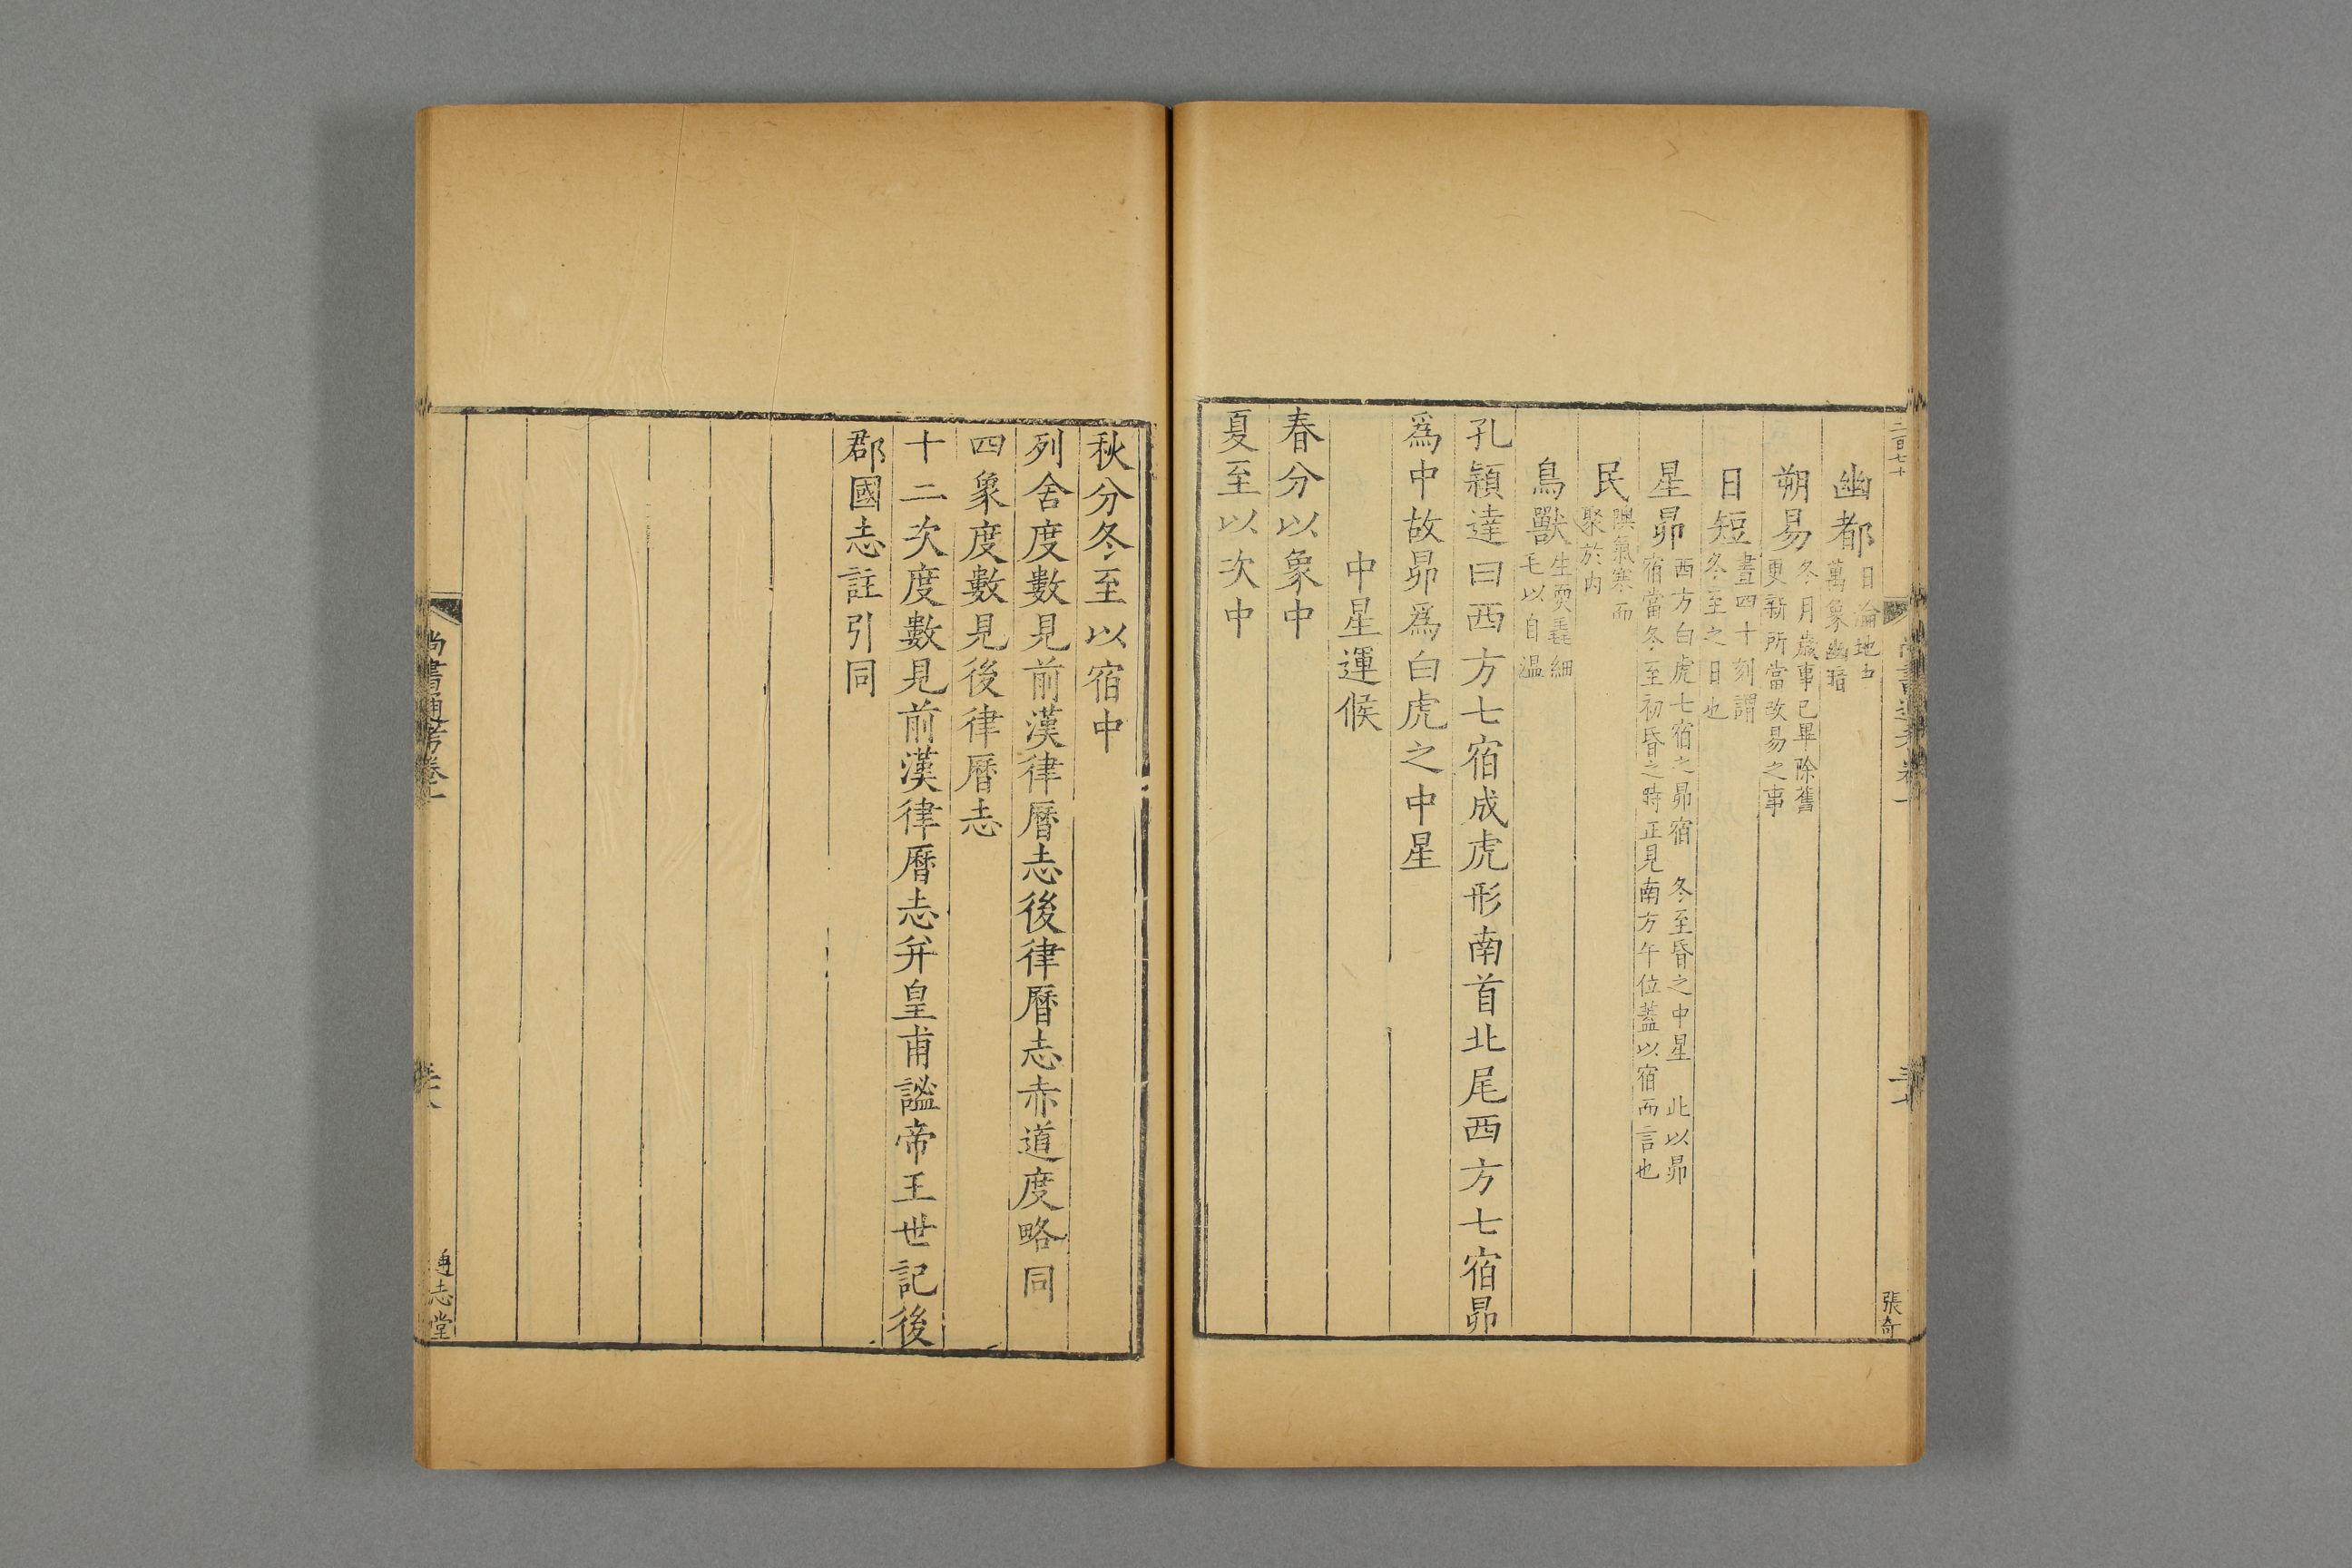 二百七十
張奇
幽都日淪地中萬象幽暗
朔易冬月歲事已畢除舊更新所當改易之事
日短晝四十刻謂冬至之日也
星昴西方白虎七宿之昴宿 冬至昏之中星 此以昴宿當冬至初昏之時正見南方午位蓋以宿而言也
民隩氣寒而聚於內
鳥獸生耎毳細毛以自溫
孔穎達曰西方七宿成虎形南首北尾西方七宿昴
爲中故昴爲白虎之中星
中星運候
春分以象中
夏至以次中
秋分冬至以宿中
列舍度數見前漢律曆志後律曆志赤道度略同
四象度數見後律曆志
十二次度數見前漢律曆志幷皇甫謐帝王世記後
郡國志註引同
尚書通考卷一
通志堂